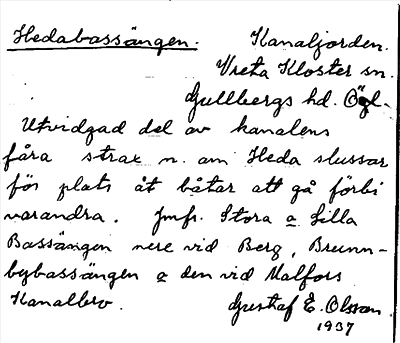 Hedabassängen. Kanaljorden.
Vreta Kloster sn.
Gullbergs hd. Ögl.
Utvidgad del av kanalens
fåra strax n. om Heda slussar
för plats åt båtar att gå förbi
varandra. Jmfr. Stora o Lilla
Bassängen nere vid Berg, Brunn-
bybassängen o den vid Malfors
Kanalbro. Gustaf E. Olsson.
1937